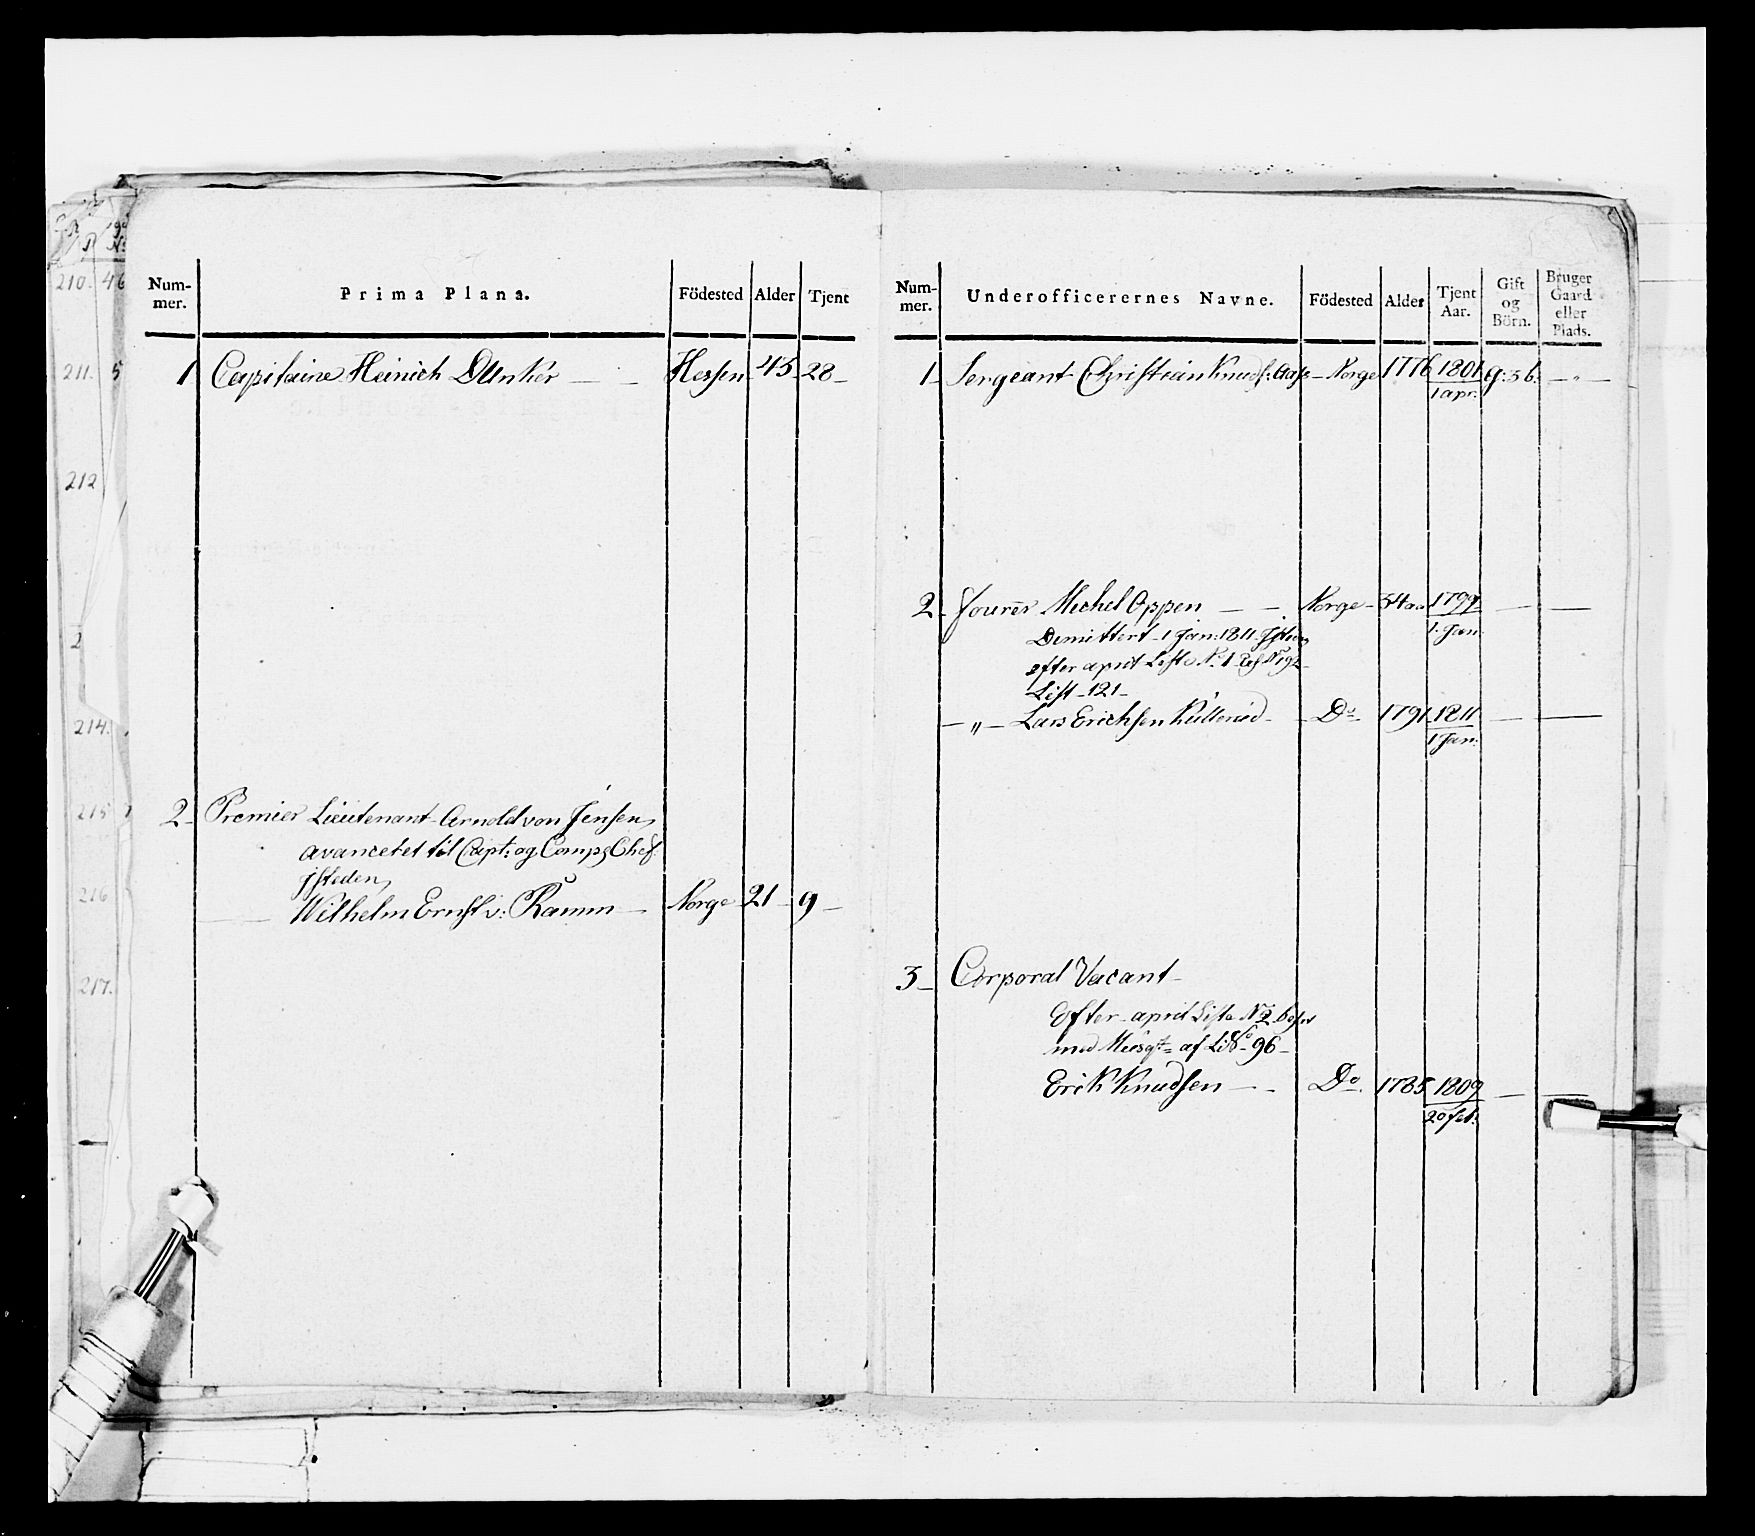 Num-
mer.
Prima Plana.
Födested
Alder
Tjent
1 Capitaine Heinich Dunker — Hessen 45 28
2 Premier Lieutenant Arnold von Jensen,
avancetet til Capt: og Comp: Chef
isteden,
— Wilhelm Ernst v: Ramm — Norge 21 9
Num-
mer.
Underofficerernes Navne.
Födested
Alder
Tjent
Aar.
Gift
og
Börn.
Bruger
Gaard
eller
Plads.
1 Sergeant Christian Knuds: Aas — Norge 1776 1801 g: 3 b: — " —
1 apr:
2 Fourer Michel Oppen — — Norge 34 aar 1799 — —
1. Jan:
Demittert 1 Jan: 1811. Isteden
efter aprit Liste No 1
List 121
— " — Lars Erichsen — Do 1791 1811 — —
1 Jan:
3 Corporal Vacant
Efter aprit Liste No 2 besat
med Musqt: af L: No 96
Erik Knudsen — — Do 1785 1809 — —
20 feb:
210. 46
211. 5
212
2
214.
215
216
217.